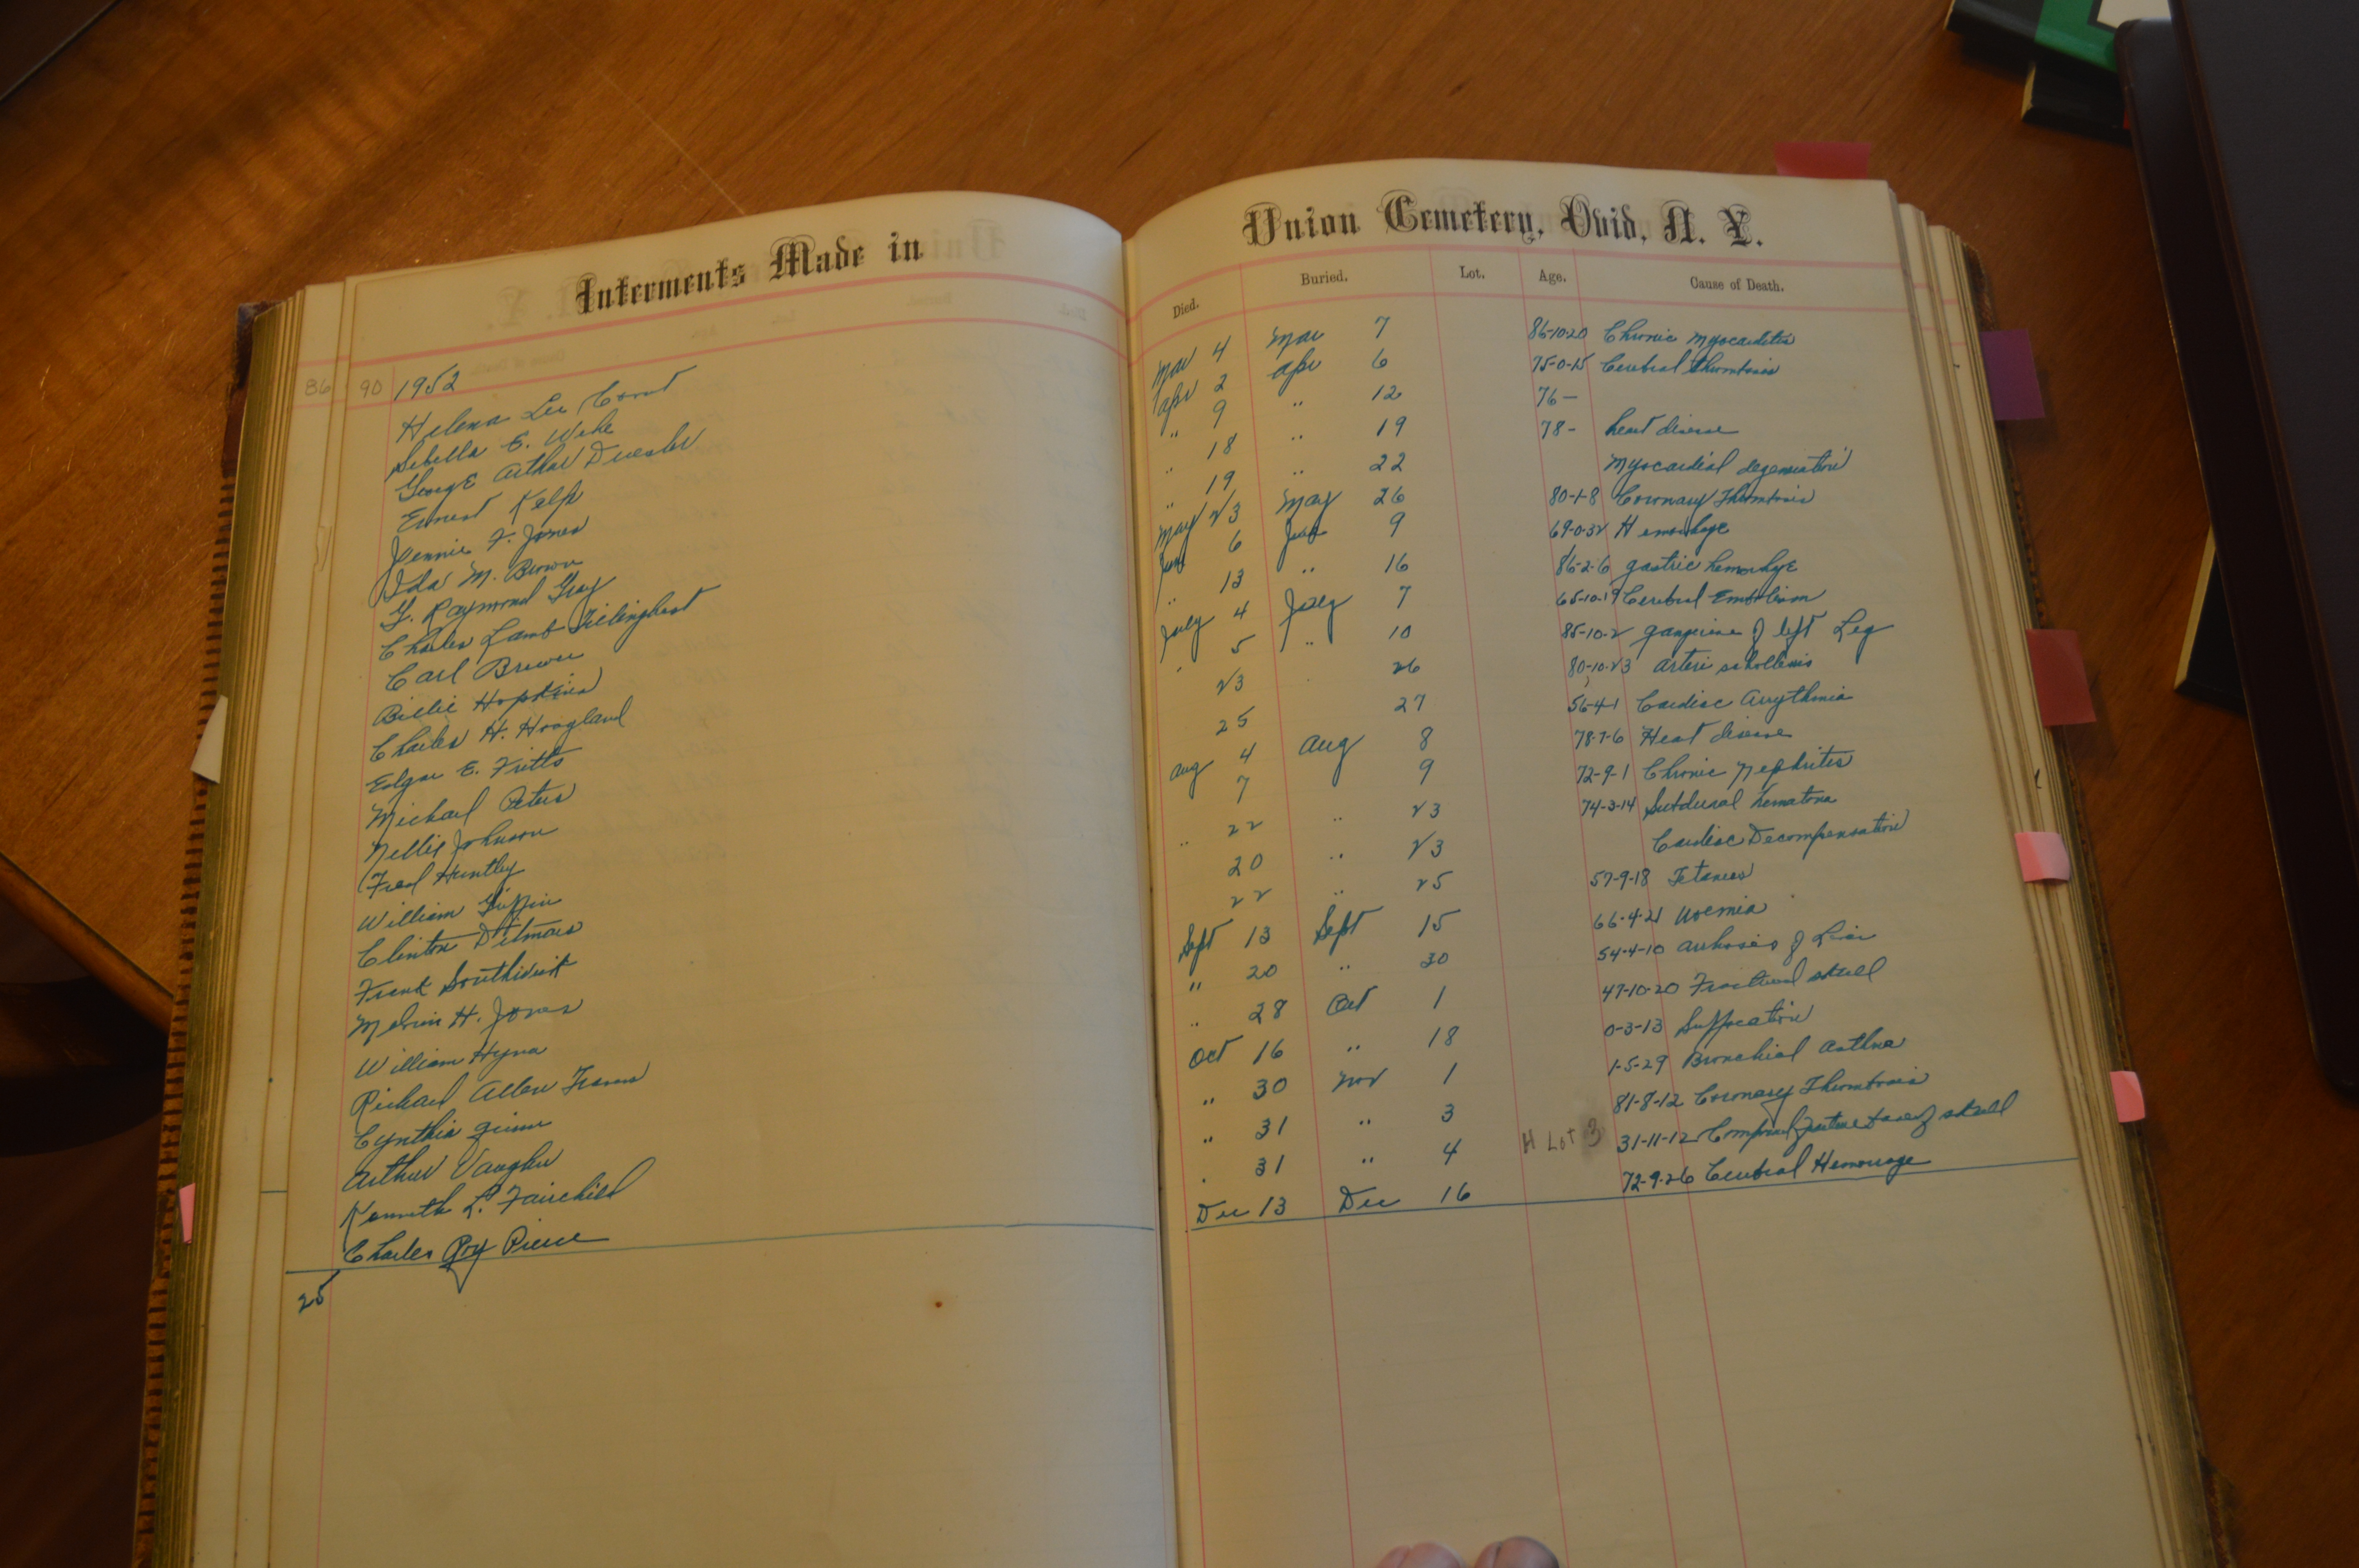 Interments Made in
86 90 1952
Helena Lee
Sebella E. Wike
George Arthur
Ernest Kelp
Jennie F. Jones
Ida M. Brown
G. Raymond Gray
Charles Lamb Tillinghast
Carl Brewer
Billie Hopkins
Charles H. Hoagland
Edgar E. Fritts
Michael Peters
Nellie Johnson
Fred Huntley
William Griffin
Clinton Ditmars
Frank Southwick
Melvin H. Jones
William Hyna
Richard Allen
Cynthia
Arthur Vaughn
Kenneth L. Fairchild
Charles Roy Pierce
25
Union Cemetery, Ovid, N. Y.
Died. Buried. Lot. Age. Cause of Death.
Mar 4 Mar 7 86-10-20 Chronic Myocarditis
Apr 2 Apr 6 75-0-15 Cerebral Thrombosis
" 9 " 12 76 —
" 18 " 19 78 - heart disease
" 19 " 22 Myocardial degeneration
May 23 May 26 80-1-8 Coronary Thrombosis
June 6 June 9 Hemorhage
" 13 " 16 86-2-6 gastric hemorhge
July 4 July 7 65-10-19 Cerebral Embolism
" 5 " 10 85-10-2 gangrine of left Leg
23 26 80-10-23 Arteri
25 27 56-4-1 Cardiac Arrythmia
Aug 4 Aug 8 78-7-6 Heart disease
7 9 72-9-1 Chronic Nephrites
" 22 " 23 74-3-14 Subdural hematoma
20 " 23 Cardiac Decompensation
22 " 25 57-9-18 Tetanus
Sept 13 Sept 15 66-4-21 Uremia
" 20 " 30 54-4-10 of Liver
" 28 Oct 1 47-10-20 Fractured skull
Oct 16 " 18 0-3-13 Suffocation
" 30 Nov 1 1-5-29 Bronchial Asthma
" 31 " 3 81-8-12 Coronary Thrombosis
" 31 " 4 H Lot 3 31-11-12 skull
Dec 13 Dec 16 72-9-26 Cerebral Hemorrage